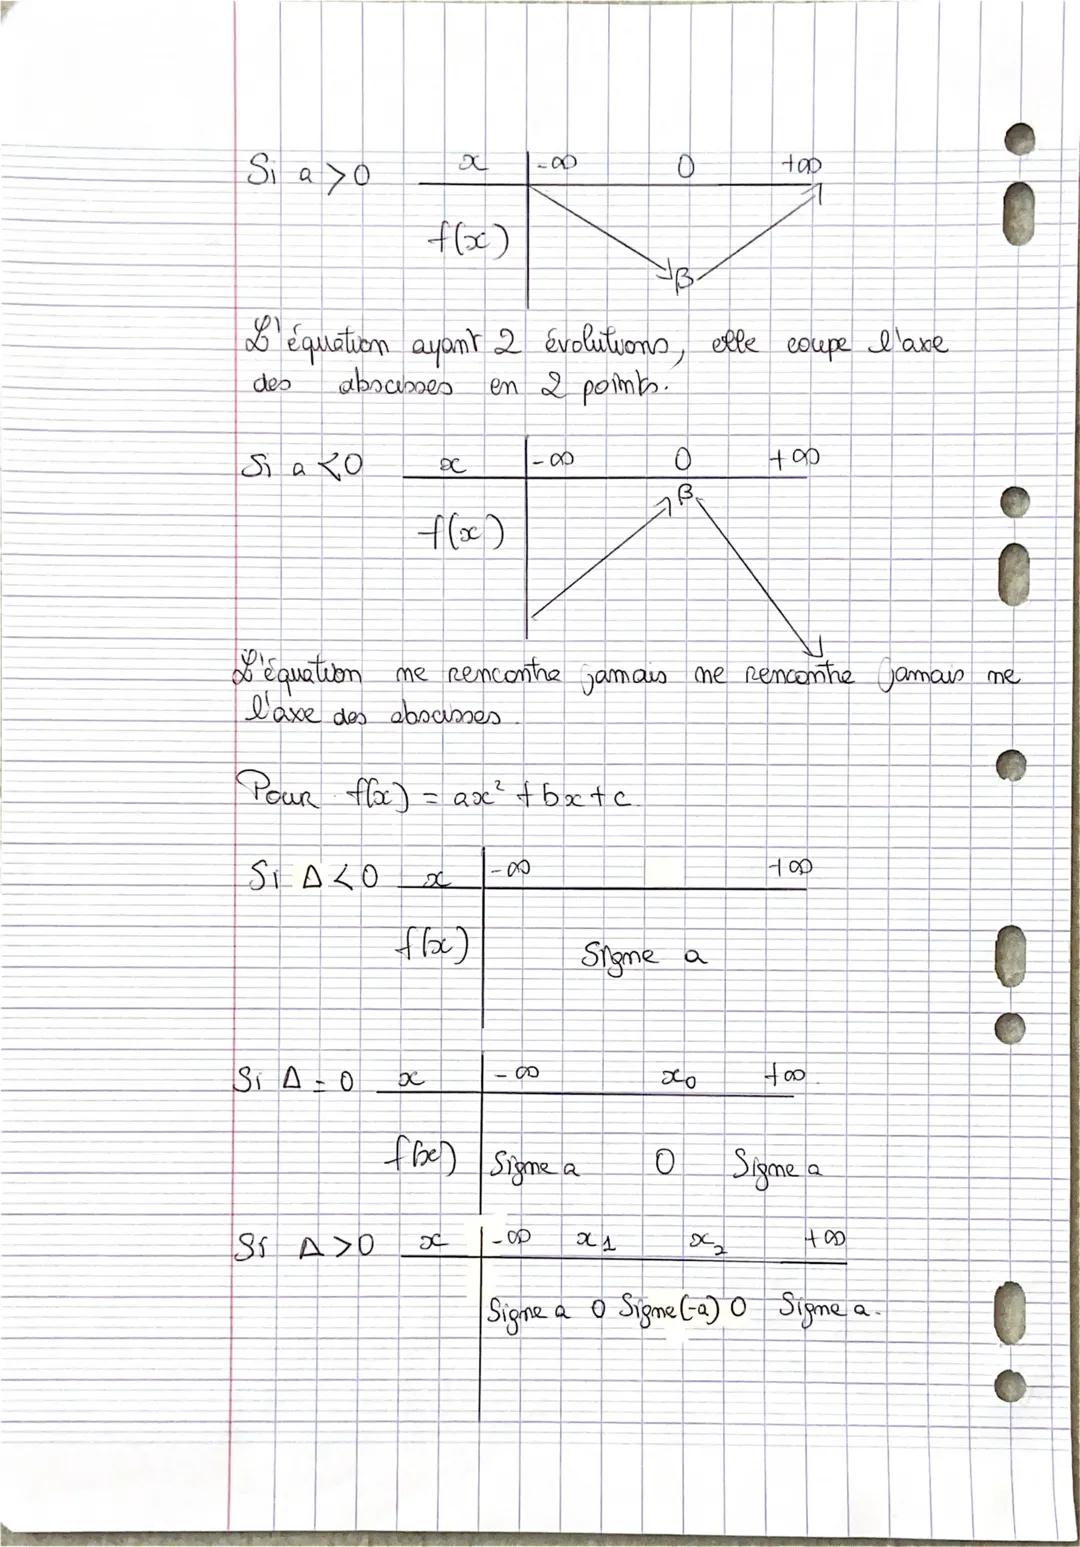 Si a > 0 x -∞ 0 +∞
f(x)
β
L'équation ayant 2 évolutions, elle coupe l'axe
des abscisses en 2 points.
Si a < 0 x -∞ 0 +∞
β
f(x)
L'équation ne rencontre jamais ne rencontre jamais ne
l'axe des abscisses.
Pour f(x) = ax² + bx + c.
Si Δ < 0 x -∞ +∞
f(x) Signe a
Si Δ = 0 x -∞ x₀ +∞
f(x) Signe a 0 Signe a
Si Δ > 0 x -∞ x₁ x₂ +∞
Signe a 0 Signe (-a) 0 Signe a.